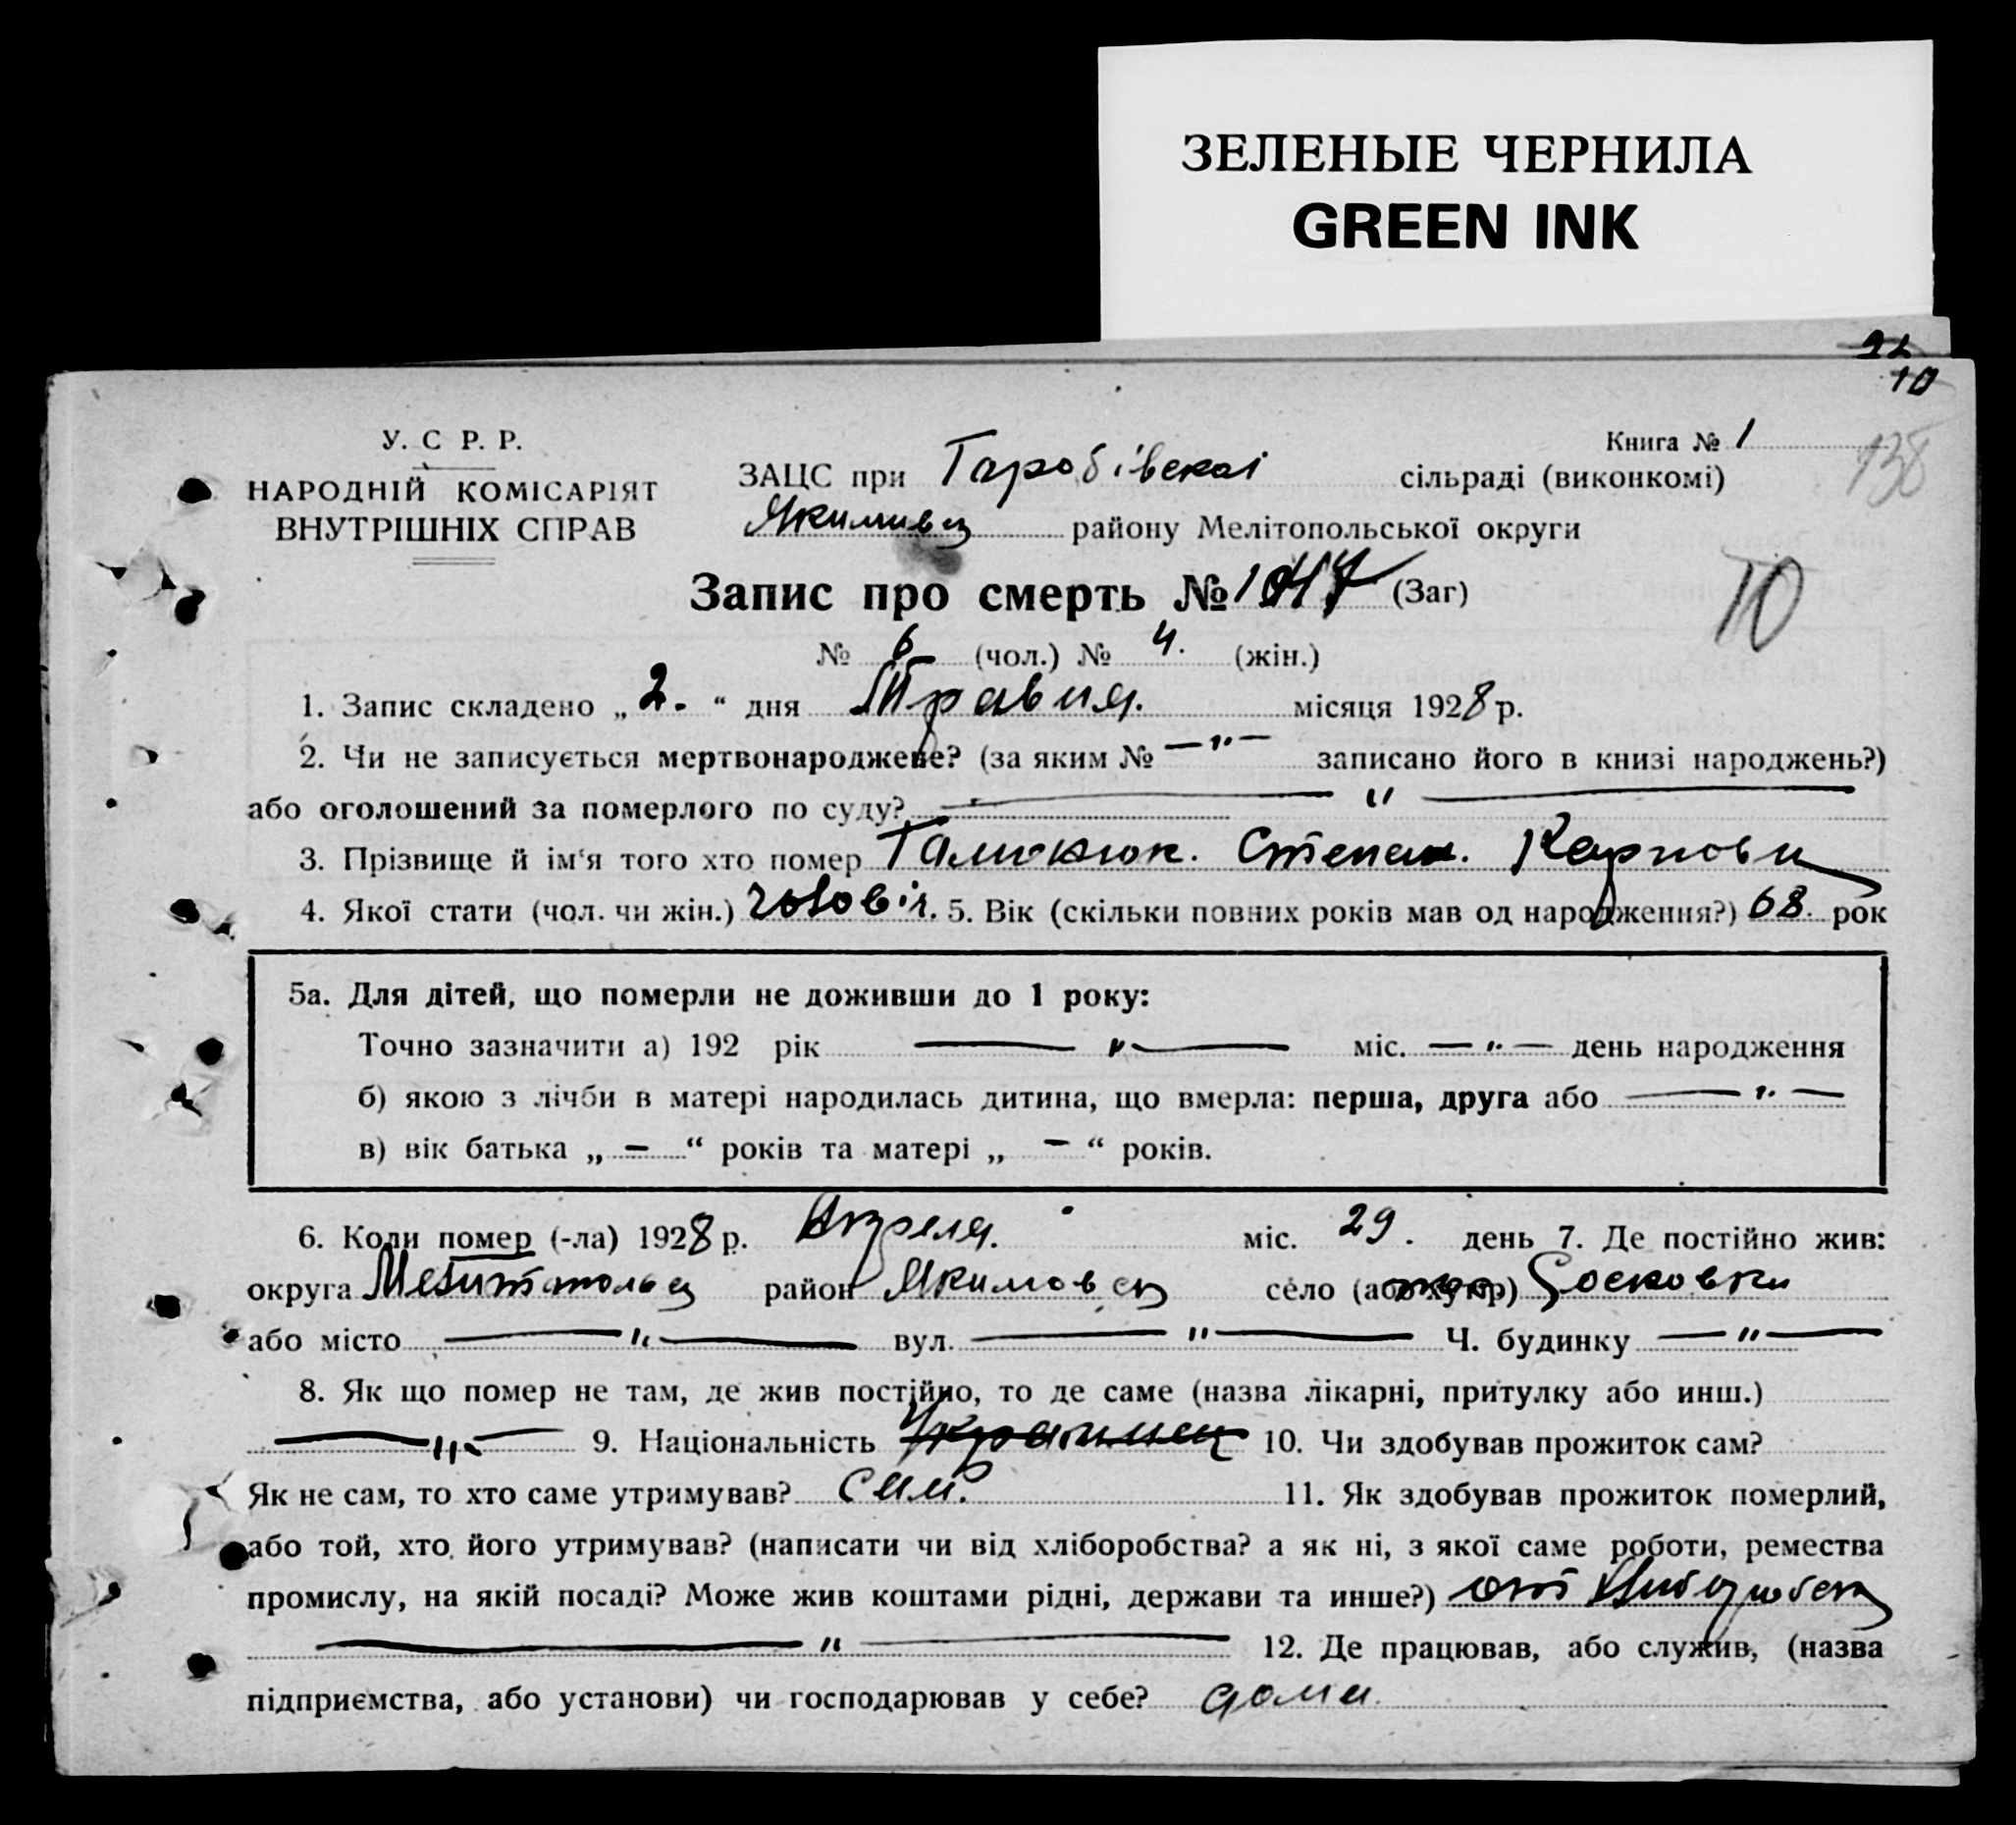 ЗЕЛЕНЫЕ ЧЕРНИЛА
GREEN INK
10
У. С Р. Р.
НАРОДНІЙ КОМІСАРІЯТ
ВНУТРІШНІХ СПРАВ
Книга № 1
138
ЗАЦС при сільраді (виконкомі)
району Мелітопольської округи
Запис про смерть № (Заг)
10
№ 6 (чол.) № 4. (жін.)
1. Запис складено „ 2. “ дня Травня. місяця 1928 р.
2. Чи не записується мертвонароджене? (за яким № — " — записано його в книзі народжень?)
або оголошений за померлого по суду? — " —
3. Прізвище й ім‘я того хто помер Степан. Карпови
4. Якої стати (чол. чи жін.) чоловіч. 5. Вік (скільки повних років мав од народження?) 68. рок
5а. Для дітей, що померли не доживши до 1 року:
Точно зазначити а) 192 рік — " — міс. — " — день народження
б) якою з лічби в матері народилась дитина, що вмерла: перша, друга або — " —
в) вік батька „ — “ років та матері „ — “ років.
6. Коли помер (-ла) 1928 р. Апреля. міс. 29. день 7. Де постійно жив:
округа район село (або хутір)
або місто — " — вул. — " — Ч. будинку — " —
8. Як що помер не там, де жив постійно, то де саме (назва лікарні, притулку або инш.)
— " — 9. Національність Украинец 10. Чи здобував прожиток сам?
Як не сам, то хто саме утримував? сам. 11. Як здобував прожиток померлий,
або той, хто його утримував? (написати чи від хліборобства? а як ні, з якої саме роботи, ремества
промислу, на якій посаді? Може жив коштами рідні, держави та инше?) от
— " — 12. Де працював, або служив, (назва
підприємства, або установи) чи господарював у себе? дома